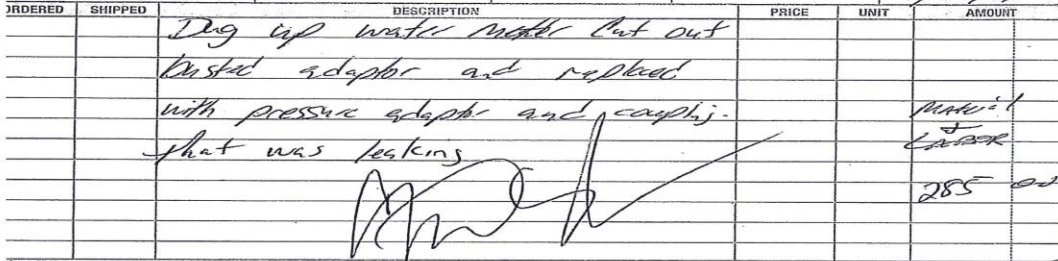 ORDERED SHIPPED DESCRIPTION PRICE UNIT AMOUNT
Dug up water meter Cut out
busted adaptor and replaced
with pressure adaptor and coupling. Material
that was leaking & LABOR
285 00